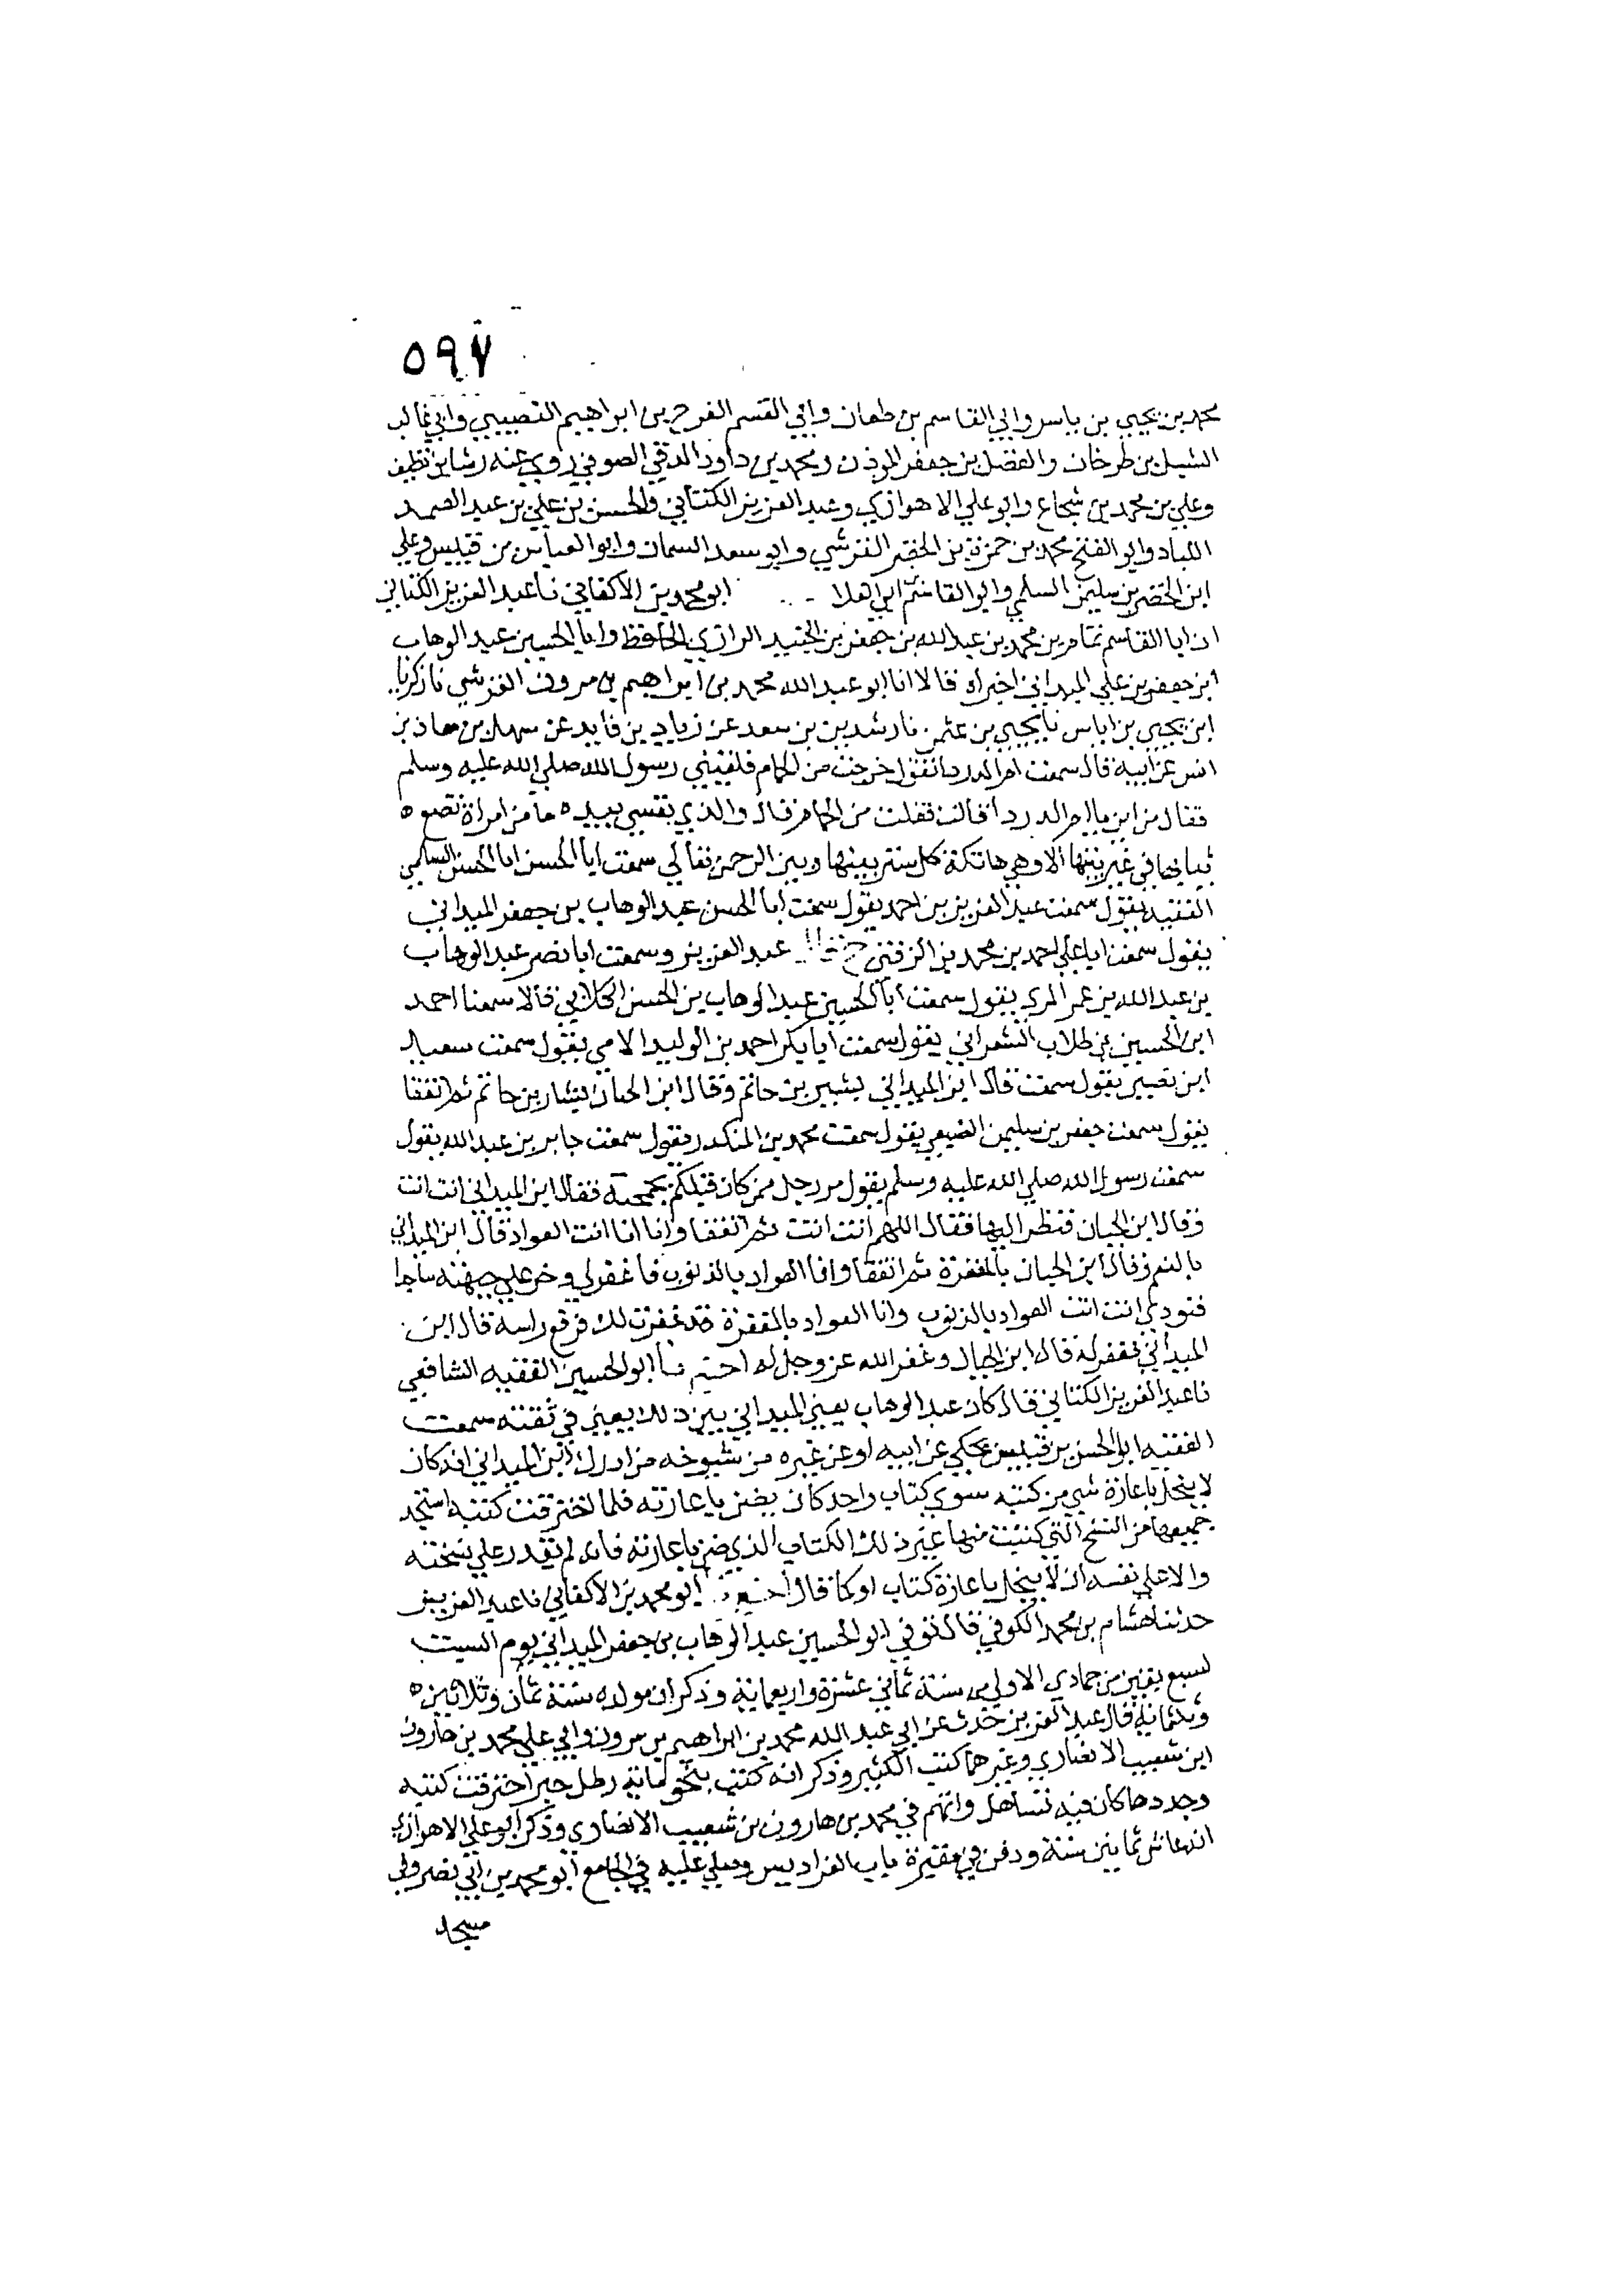 ٥٩٧
محمد بن يحيي بن ياسر وابي القاسم بن طعان وابي القسم الفرج بن ابراهيم النصيبي وابي غالب
الشبل بن طرخان والفضل بن جعفر الموذن ومحمد بن داود الدقي الصوفي روي عنه رشا بن نظيف
وعلي بن محمد بن شجاع وابو علي الاهوازي وعبد العزيز الكتاني والحسن بن علي بن عبد الصمد
اللباد وابو الفتح محمد بن حمزة بن الخضر القرشي وابو سعد السمان وابو العباس بن قبيس وعلي
ابن الخضر بن سليمن السلمي وابو القاسم بن ابي العلا ابو محمد بن الاكفاني نا عبد العزيز الكتاني
ان ابا القاسم تمام بن محمد بن عبد الله بن جعفر بن الجنيد الرازي الحافظ وابا الحسين عبد الوهاب
ابن جعفر بن علي الميداني اخبراه قالا انا ابو عبد الله محمد بن ابراهيم بن مروان القرشي نا زكريا
ابن يحيي بن اياس نا يحيي بن عثمن نا رشدين بن سعد عن زياد بن فايد عن سهل بن معاذ بن
انس عن ابيه قال سمعت ام الدردا تقول خرجت من الحمام فلقيني رسول الله صلي الله عليه وسلم
فقال من اين يا ام الدردا قالت فقلت من الحمام قال والذي نفسي بيده ما من امراة تضع
ثيابها في غير بيتها الا وهي هاتكة كل ستر بينها وبين الرحمن تعالي سمعت ابا الحسن السلمي
الفقيه يقول سمعت عبد العزيز بن احمد يقول سمعت ابا الحسن عبد الوهاب بن جعفر الميداني
يقول سمعت ابا علي احمد بن محمد بن الزفتي عبد العزيز وسمعت ابا نصر عبد الوهاب
بن عبد الله بن عمر المري يقول سمعت ابا الحسين عبد الوهاب بن الحسن الكلابي قالا سمعنا احمد
ابن الحسين بن طلاب الشعراني يقول سمعت ابا بكر احمد بن الوليد الامي يقول سمعت سعيد
ابن نصير يقول سمعت قال ابن الميداني بشير بن حاتم وقال ابن الجبان بشار بن حاتم ثم اتفقا
يقول سمعت جعفر بن سليمن الضبعي يقول سمعت محمد بن المنكدر يقول سمعت جابر بن عبد الله يقول
سمعت رسول الله صلي الله عليه وسلم يقول مر رجل ممن كان قبلكم بجمجمة فقال ابن الميداني انت انت
وقال ابن الجبان فنظر اليها فقال اللهم انت انت ثم اتفقا وانا انا انت العواد قال ابن الميداني
بالنعم وقال ابن الجبان بالمغفرة ثم اتفقا وانا العواد بالذنوب فاغفر لي وخر علي جبهته ساجدا
فنودي انت انت العواد بالذنوب وانا العواد بالمغفرة قد غفرت لك فرفع راسه قال ابن
الميداني فغفر له قال ابن الجبان وغفر الله عز وجل له نا ابو الحسين الفقيه الشافعي
نا عبد العزيز الكتاني قال كان عبد الوهاب يعني الميداني يبن ذلك يعني في ثقته سمعت
الفقيه ابا الحسن بن قبيس يحكي عن ابيه او عن غيره من شيوخه من ادرك ابن الميداني انه كان
لا يبخل باعارة شي من كتبه سوي كتاب واحد كان يضن باعارته فلما احترقت كتبه استجد
جميعها من النسخ التي كتبت منها غير ذلك الكتاب الذي ضن باعارته فانه لم يقدر علي نسخته
والا علي نفسه ان لا يبخل باعارة كتاب او كما قال ابو محمد بن الاكفاني نا عبد العزيز
حدثنا هشام بن محمد الكوفي قال توفي ابو الحسين عبد الوهاب بن جعفر الميداني يوم السبت
لسبع بقين من جمادي الاولي من سنة ثماني عشرة واربعماية وذكر ان مولده سنة ثمان وثلاثين
وثلثماية قال عبد العزيز حدث عن ابي عبد الله محمد بن ابراهيم بن مرون وابي علي محمد بن هارون
ابن شعيب الانصاري وغيرهما كتب الكثير وذكر انه كتب بنحو ماية رطل حبر احترقت كتبه
وجددها كان فيه تساهل واتهم في محمد بن هارون بن شعيب الانصاري وذكر ابو علي الاهوازي
انه عاش ثمانين سنة ودفن في مقبرة باب الفراديس وصلي عليه في الجامع ابو محمد بن ابي نصر وفي
مسجد